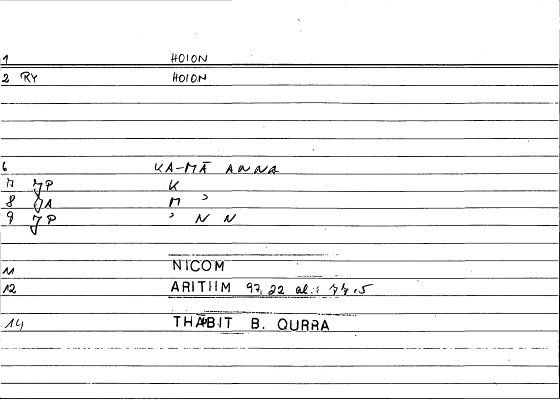 1 HOION
2 RY HOION
6 KA-MĀ ANNA
7 JP K
8 JA M ʾ
9 JP ʾ N N
11 NICOM
12 ARITIIM 97,22 al.: 77,5
14 THABIT B. QURRA